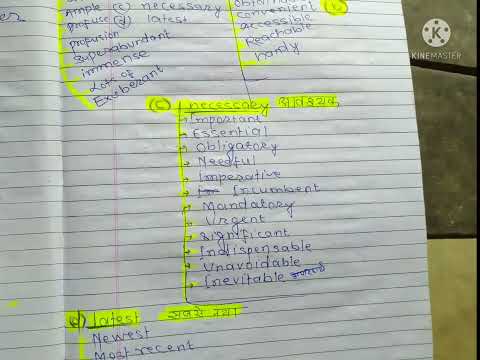 Ample (c) necessary
profuse (d) latest
profusion
Superabundant
immense
Lots of
Exuberant
convenient
accessible
Reachable
hardy
(c) necessary आवश्यक
Important
Essential
Obligatory
Needful
Imperative
Incumbent
Mandatory
Urgent
Significant
Indispensable
Unavoidable
Inevitable
(d) latest सबसे नया
Newest
Most recent
KINEMASTER